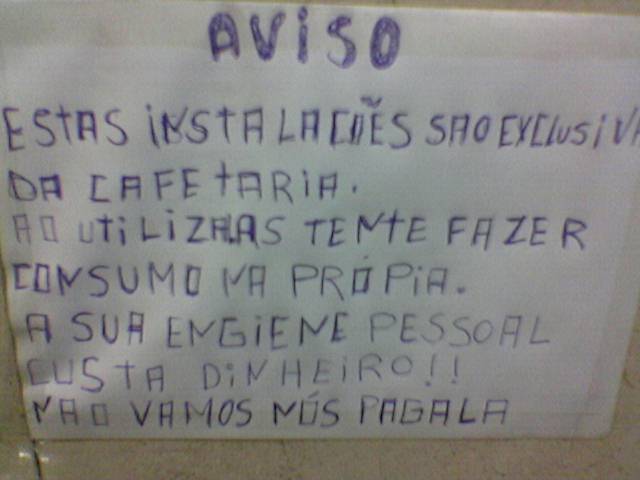 AVISO
ESTAS INSTALAÇÕES SAO EXCLUSIVA
DA CAFETARIA.
AO UTILIZALAS TENTE FAZER
CONSUMO NA PRÓPIA.
A SUA ENGIENE PESSOAL
CUSTA DINHEIRO!!
NAO VAMOS NÓS PAGALA